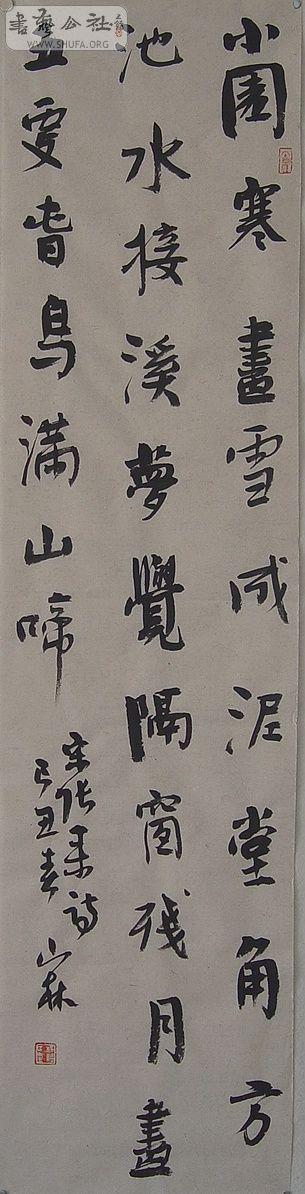 書藝公社
WWW.SHUFA.ORG
小園寒盡雪成泥堂角方
池水接溪夢覺隔窗殘月盡
五更春鳥滿山啼
宋张耒詩
己丑春